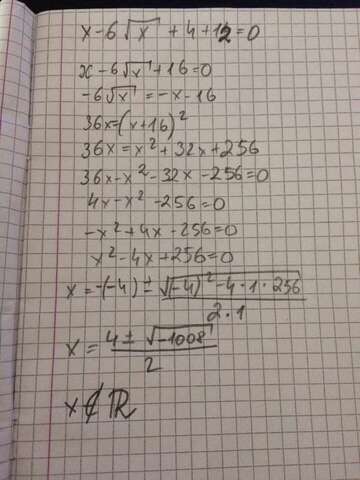 x-6√x +4+12=0
x-6√x+16=0
-6√x=-x-16
36x=(x+16)²
36x=x²+32x+256
36x-x²-32x-256=0
4x-x²-256=0
-x²+4x-256=0
x²-4x+256=0
x=-(-4)±√(-4)²-4·1·256
2·1
x=4±√-1008
2
x∉ℝ